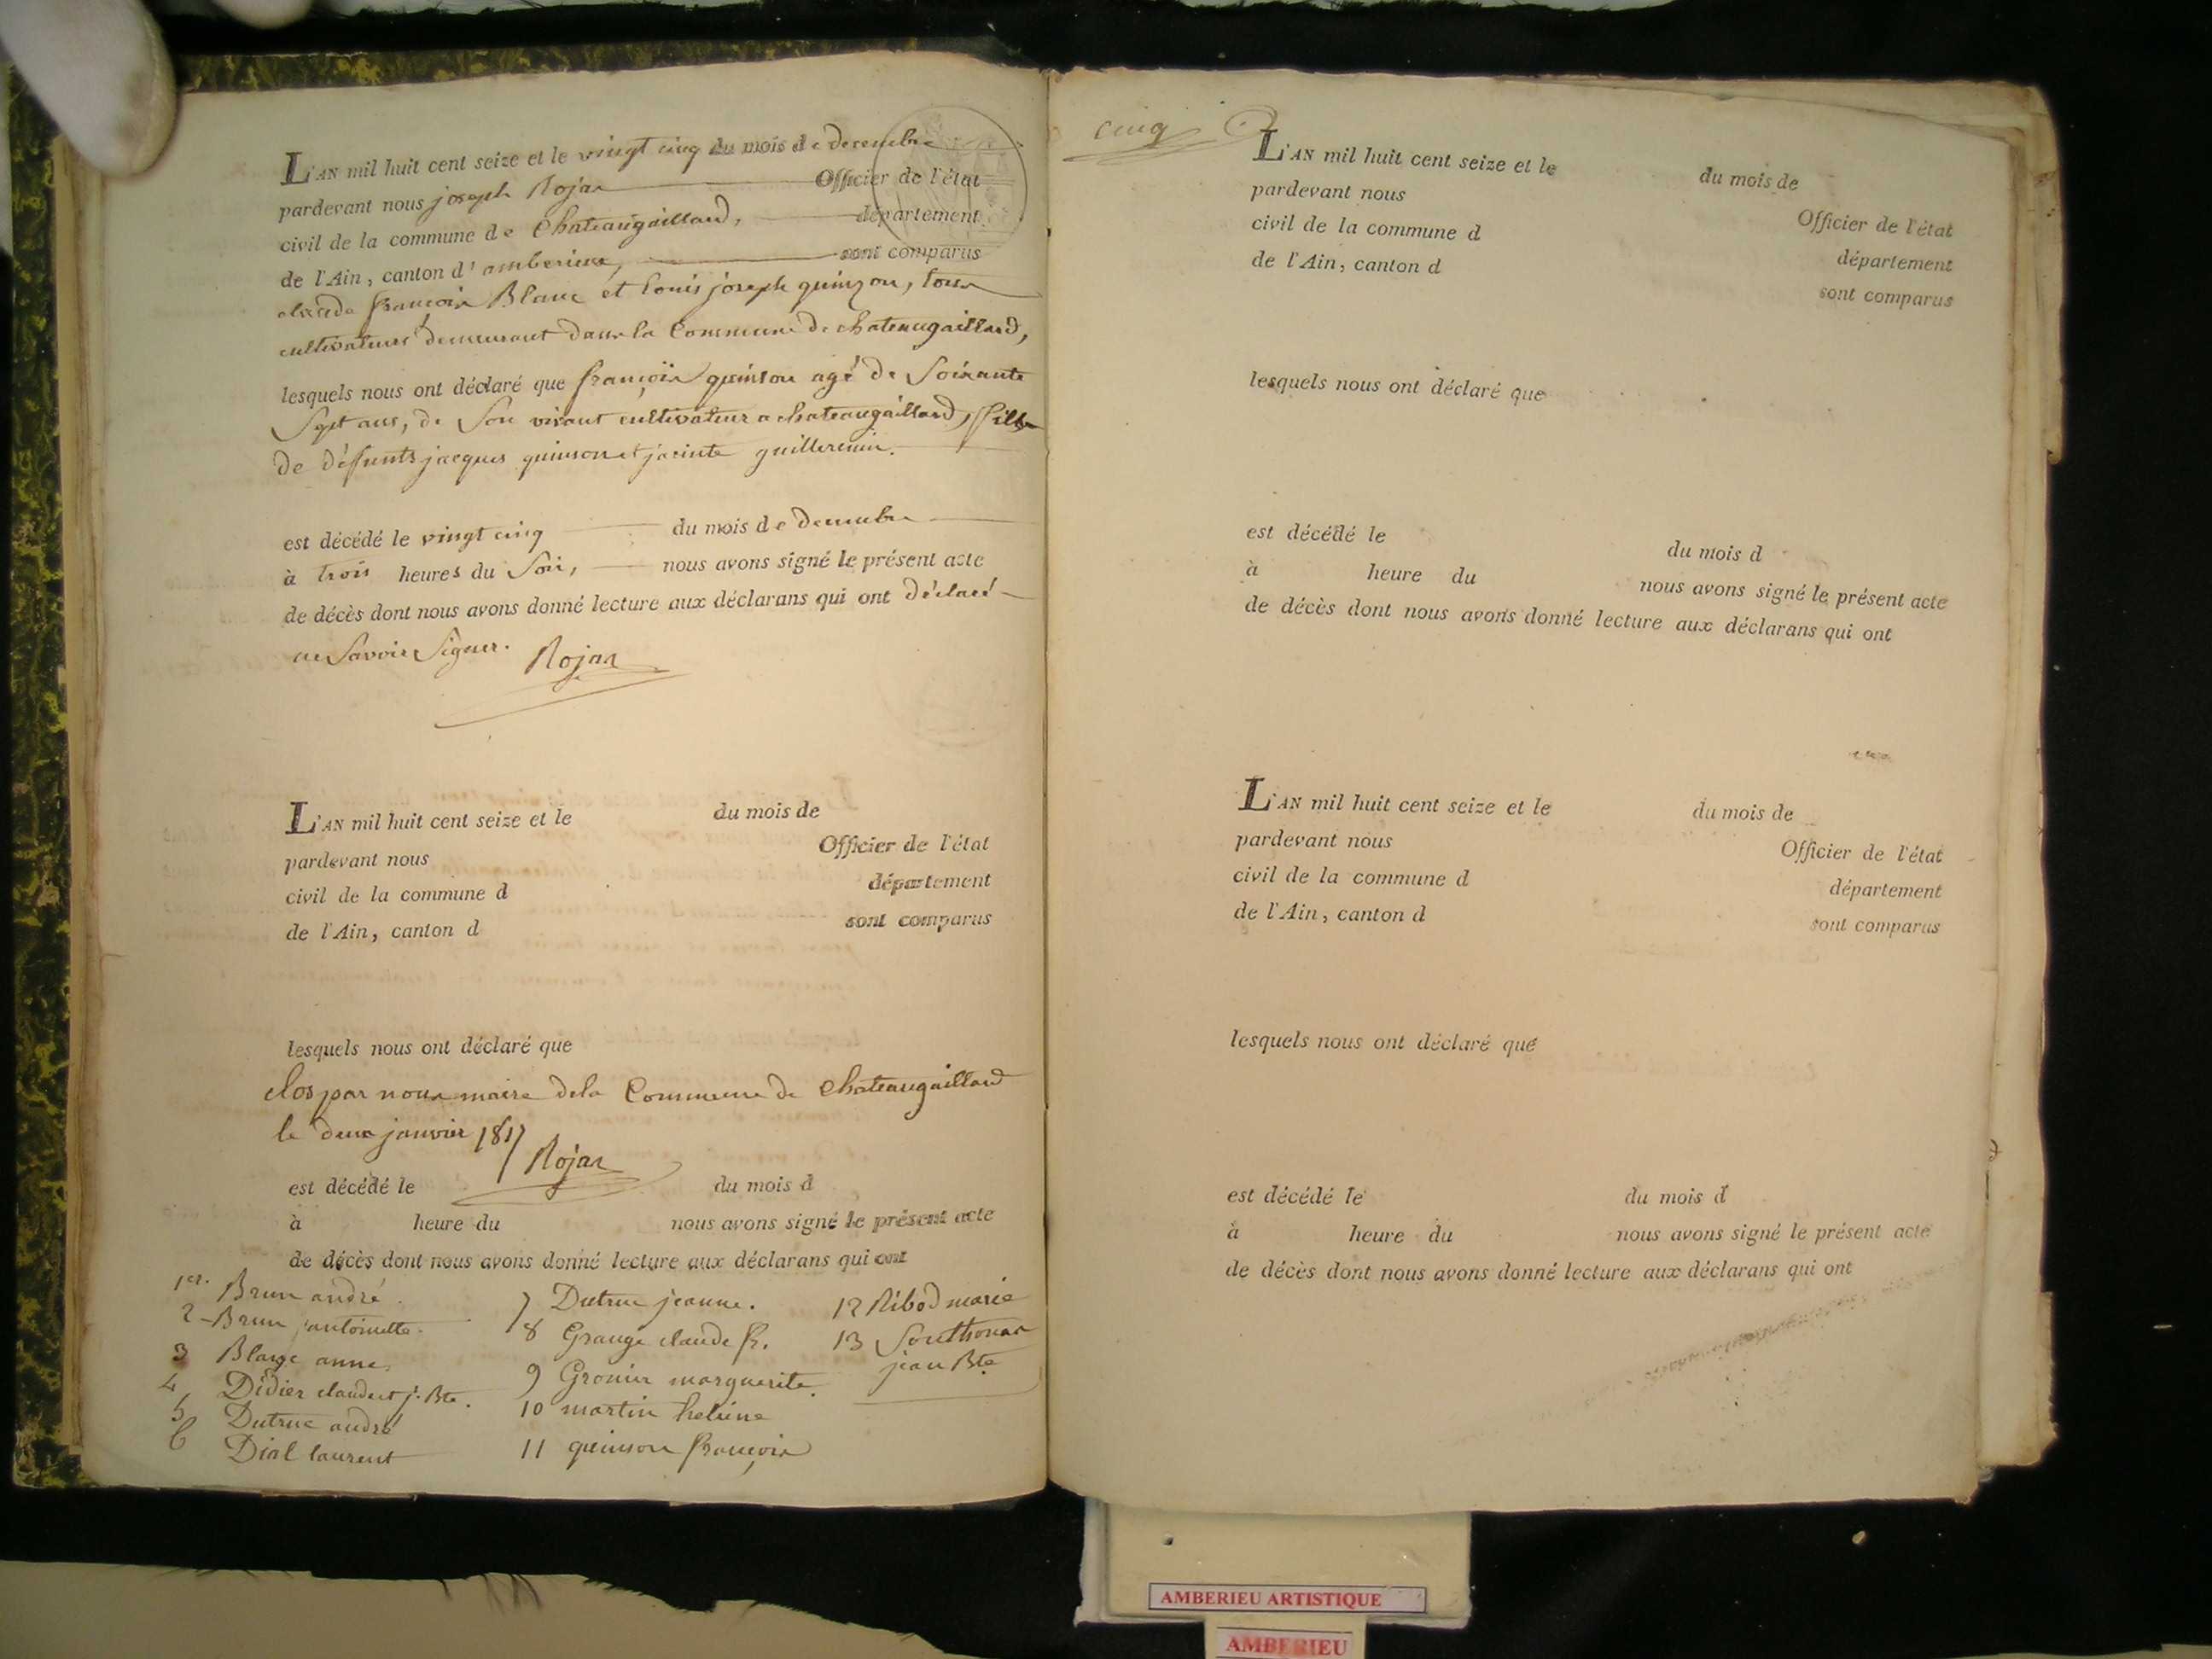 L'AN mil huit cent seize et le vingt cinq du mois de decembre
pardevant nous joseph Rojas Officier de l'état
civil de la commune de Chateaugaillard, département
de l'Ain, canton d'amberieux, sont comparus
claude françois Blanc et louis joseph quinson, tous
cultivateurs demeurant dans la Commune de chateaugaillard,
lesquels nous ont déclaré que françois quinson agé de Soixante
Sept ans, de Son vivant cultivateur a chateaugaillard, fils
de défunts jacques quinson et jacinte guillermin.
est décédé le vingt cinq du mois de decembre
à trois heures du Soir, nous avons signé le présent acte
de décès dont nous avons donné lecture aux déclarans qui ont déclaré
ne Savoir Signer. Rojas
L'AN mil huit cent seize et le du mois de
pardevant nous Officier de l'état
civil de la commune d département
de l'Ain, canton d sont comparus
lesquels nous ont déclaré que
clos par nous maire de la Commune de chateaugaillard
le deux janvier 1817
Rojas
est décédé le du mois d
à heure du nous avons signé le présent acte
de décès dont nous avons donné lecture aux déclarans qui ont
1er. Brun andré.
2 Brun antoinette.
3 Blanc anne.
4 Didier claude et j. Bte.
5 Dutruc andré
6 Dial laurent
7 Dutruc jeanne.
8 Grange claude fr.
9 Gronier marguerite.
10 martin heleine
11 quinson françois
12 Ribod marie
13 Southonax
jean Bte
cinq
L'AN mil huit cent seize et le du mois de
pardevant nous Officier de l'état
civil de la commune d département
de l'Ain, canton d sont comparus
lesquels nous ont déclaré que
est décédé le du mois d
à heure du nous avons signé le présent acte
de décès dont nous avons donné lecture aux déclarans qui ont
L'AN mil huit cent seize et le du mois de
pardevant nous Officier de l'état
civil de la commune d département
de l'Ain, canton d sont comparus
lesquels nous ont déclaré que
est décédé le du mois d
à heure du nous avons signé le présent acte
de décès dont nous avons donné lecture aux déclarans qui ont
AMBERIEU ARTISTIQUE
AMBERIEU